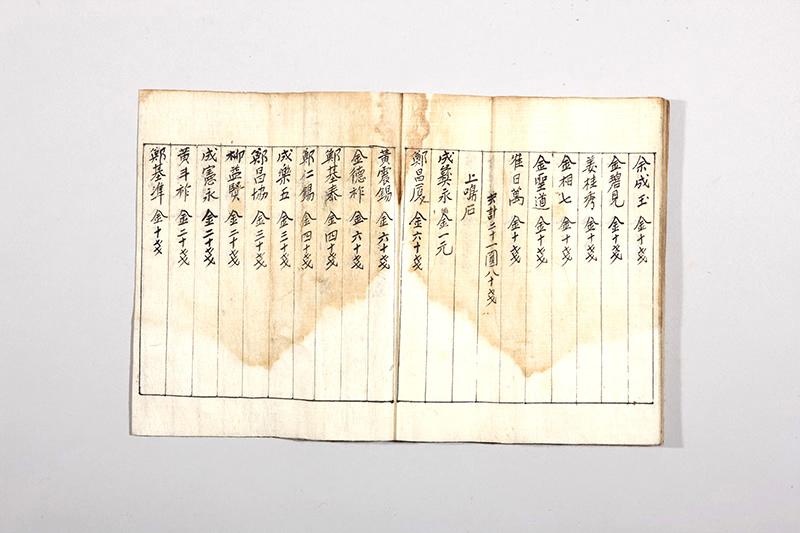 余成玉 金十戔
金碧見 金十戔
姜桂秀 金十戔
金相七 金十戔
金雲道 金十戔
崔日萬 金十戔
共計二十一圓八十戔
上鳴石
成彝永 金一元
鄭昌厦 金六十戔
黃震錫 金六十戔
金德祚 金六十戔
鄭基泰 金四十戔
鄭仁錫 金四十戔
成樂五 金三十戔
鄭昌協 金三十戔
柳益賢 金二十戔
成憲永 金二十戔
黃斗祚 金二十戔
鄭基準 金十戔